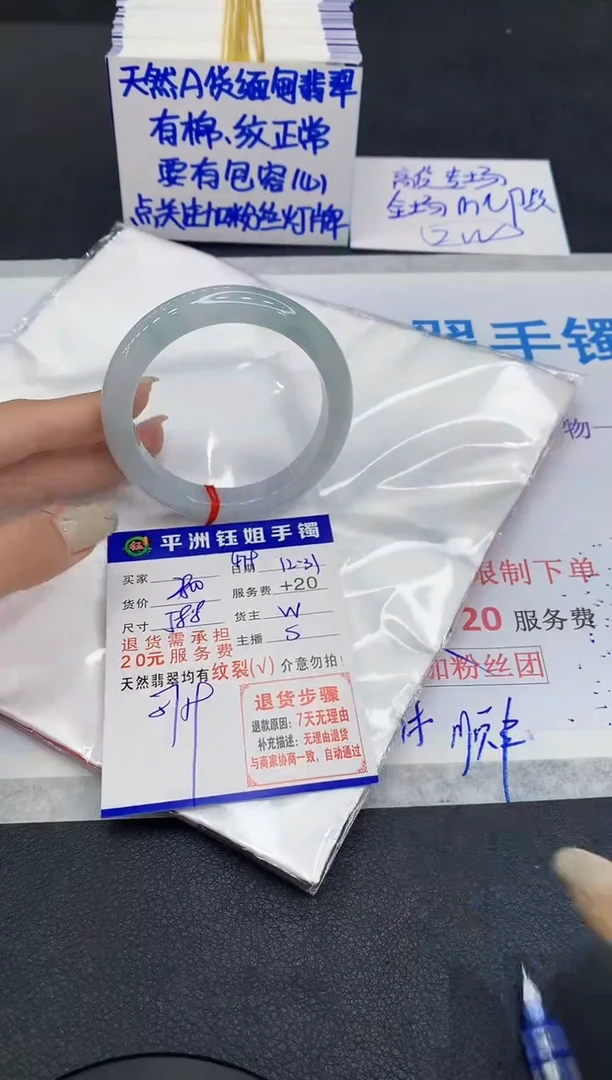 天然A货缅甸翡翠
有棉、纹正常
要有包容(心)
点关注加粉丝灯牌
翠手镯
物一
平洲钰姐手镯
买家 日期 12-31
货价 服务费 +20
尺寸 588 货主 W
退货需承担 主播 S
20元服务费
天然翡翠均有纹裂(√) 介意勿拍!
退货步骤
退款原因: 7天无理由
补充描述: 无理由退货
与商家协商一致，自动通过
限制下单
20 服务费
加粉丝团